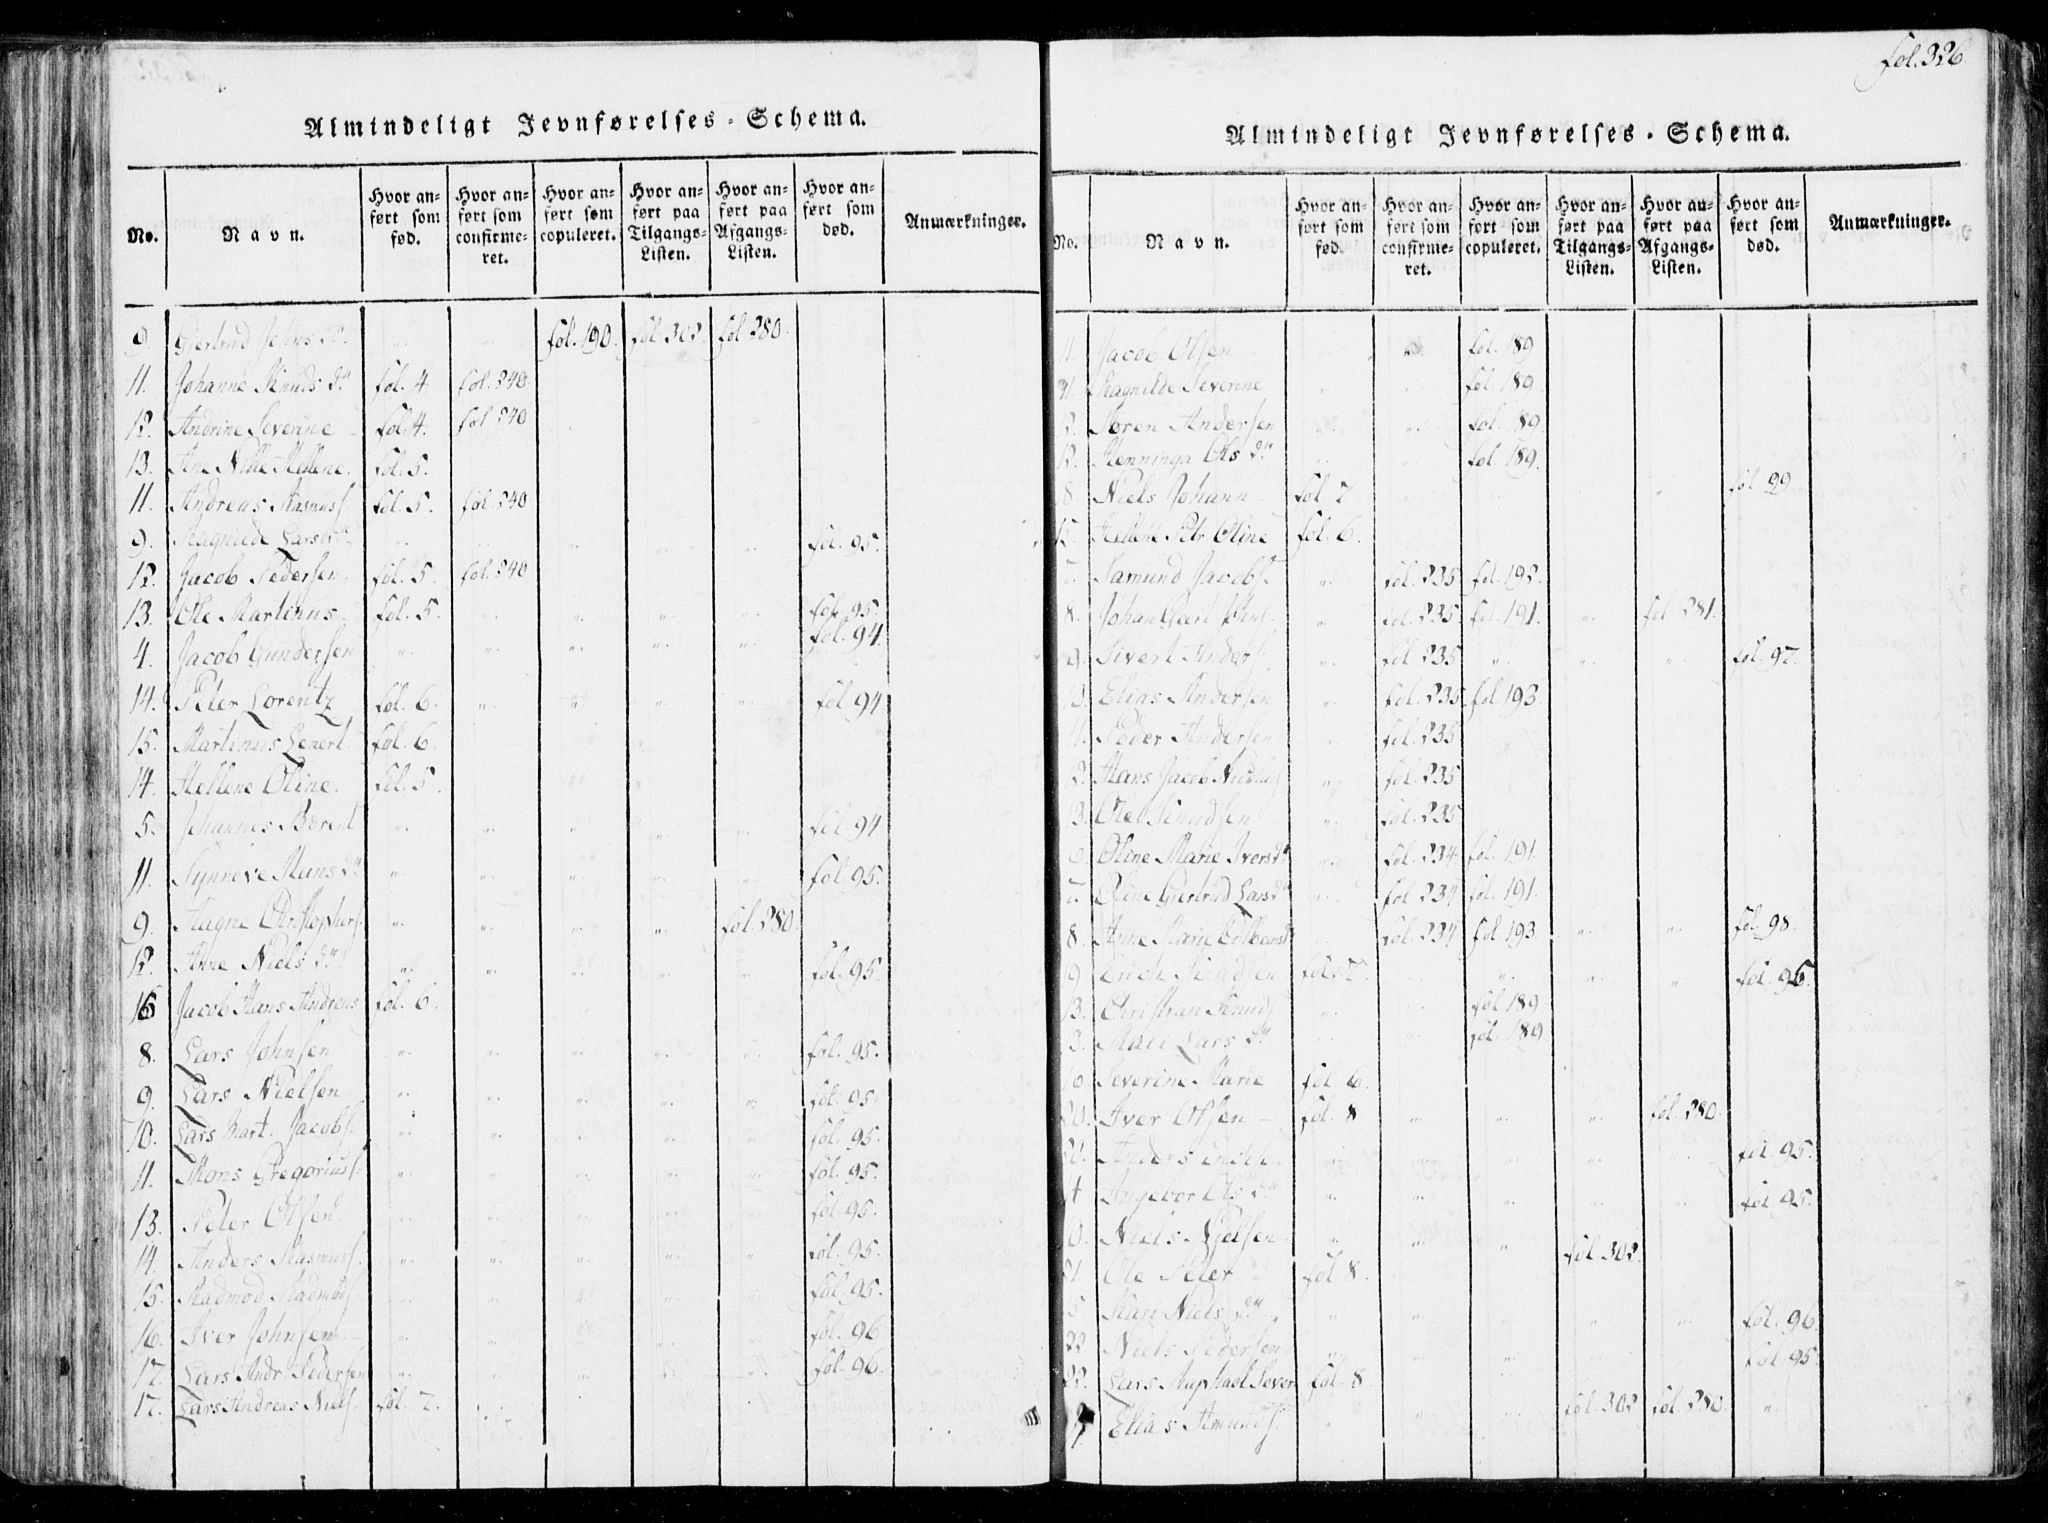 fol. 326
Almindeligt Jevnførelses-Schema.
No. Navn. Hvor anført som fød. Hvor anført som confirmeret. Hvor anført som copuleret. Hvor anført paa Tilgangs-Listen. Hvor anført paa Afgangs-Listen. Hvor anført som død. Anmærkninger.
9. Giertrud Johns Dr. „ „ fol. 190. fol. 302. fol 280.
11. Johanne Knuds Dr fol. 4. fol. 240.
12. Andrine Severine fol. 4. fol 240
13. Ane Hellene. fol. 5.
11. Andreas Rasmuss fol. 5. fol. 240
9. Lars fol. 95.
12. Jacob Pedersen fol. 5. fol. 240
13. Ole Martinus fol. 5. „ „ „ „ fol. 95.
4. Jacob Gundersen „ „ „ „ „ fol. 94.
14. Peter Lorentz fol. 6. „ „ „ „ fol 94
15. Martinus Lenert. fol. 6.
14. Hellene Oline. fol. 5.
5. Johannes Berent „ „ „ „ „ fol. 94
11. Synneve Hans Dr „ „ „ „ „ fol. 95.
9. Magne Christophers. „ „ „ „ fol. 280.
12. Anne Niels Dr. „ „ „ „ „ fol. 95.
16 Jacob Hans Andreas fol. 6.
8. Lars Johnsen „ „ „ „ „ fol. 95.
9. Lars Nielsen „ „ „ „ „ fol. 95.
10. Lars Mart. Jacobs. „ „ „ „ „ fol. 95.
11. Mons Gregoriuss. „ „ „ „ „ fol. 95.
13. Peter Olsen „ „ „ „ „ fol. 95.
14. Anders Rasmuss. „ „ „ „ „ fol. 95.
15. Madmod Madmods „ „ „ „ „ fol. 95.
16. Iver Johnsen „ „ „ „ „ fol. 96
17. Lars Andr. Pedersen „ „ „ „ „ fol. 96.
17. Lars Andreas Niels. fol. 7.
Almindeligt Jevnførelses-Schema.
No. Navn. Hvor anført som fød. Hvor anført som confirmeret. Hvor anført som copuleret. Hvor anført paa Tilgangs-Listen. Hvor anført paa Afgangs-Listen. Hvor anført som død. Anmærkninger.
11. Jacob Olsen „ „ fol. 189
Ragnilde Severine „ „ fol. 189
Søren Andersen „ „ fol. 189.
12. Henninga Ols Dr „ „ fol 189.
8. Niels Johann fol. 7 „ „ „ „ fol 99.
15. Hellene Petr. Oline fol. 6.
7. Samund Jacobs. „ fol. 235 fol. 192.
8. Johan „ fol. 235. fol. 191. „ fol 281.
9. Sivert Anders. „ fol. 235 „ „ „ fol. 97.
10. Elias Andersen „ fol. 235. fol. 193.
11. Peder Andersen „ fol. 235
12. Hans Jacob „ fol. 235
13. Ole Knudsen „ fol. 235
6. Oline Marie Ivers Dr „ fol. 234. fol. 191.
7. Oline Giertrud Lars Dr „ fol 234 fol. 191.
8. Anne Marie „ fol. 234 fol. 193 „ „ fol. 98.
9. Erich Knudsen fol. 7. „ „ „ „ fol. 96.
13. Christian Knuds „ „ fol 189
3. Mari Lars Dr „ „ fol. 189
16 Severine Marie fol 6.
20. Iver Olsen fol. 8 „ „ „ fol. 280.
Anders „ „ „ „ „ fol. 95.
Ingebor Ols Dr „ „ „ „ „ fol. 95.
Niels Nielsen „ „ „ fol. 302.
21 Ole Peter fol 8.
5 Mari Niels Dr „ „ „ „ „ fol. 96.
22 Niels Pedersen „ „ „ „ „ fol. 95.
22. Lars Raphael Sever. fol. 8
Elias Amunds. „ „ „ fol. 302 fol. 280. „